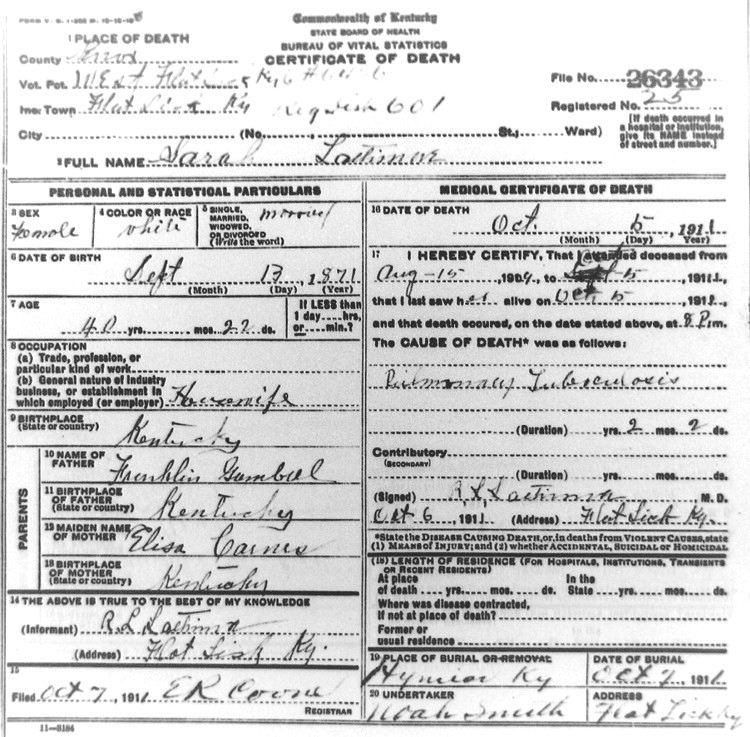 FORM V. S. 1-
Commonwealth of Kentucky
STATE BOARD OF HEALTH
BUREAU OF VITAL STATISTICS
CERTIFICATE OF DEATH
1 PLACE OF DEATH
County Knox
Vot. Pct. West Flat Lick Ky
Inc. Town Flat Lick Ky
Reg Dist 601
City (No. St.; Ward)
File No. 26343
Registered No. 25
[If death occurred in a hospital or institution, give its NAME instead of street and number.]
2 FULL NAME Sarah Latimore
PERSONAL AND STATISTICAL PARTICULARS
3 SEX Female
4 COLOR OR RACE white
5 SINGLE, MARRIED, WIDOWED, OR DIVORCED (Write the word) married
6 DATE OF BIRTH
Sept 13, 1871
(Month) (Day) (Year)
7 AGE
40 yrs. mos. 22 ds.
If LESS than 1 day....hrs. or....min.?
8 OCCUPATION
(a) Trade, profession, or particular kind of work
(b) General nature of industry business, or establishment in which employed (or employer) Housewife
9 BIRTHPLACE
(State or country) Kentucky
PARENTS
10 NAME OF FATHER Franklin Gambrel
11 BIRTHPLACE OF FATHER
(State or country) Kentucky
12 MAIDEN NAME OF MOTHER Elisa Carnes
13 BIRTHPLACE OF MOTHER
(State or country) Kentucky
14 THE ABOVE IS TRUE TO THE BEST OF MY KNOWLEDGE
(Informant) R L
(Address) Flat Lick Ky.
15
Filed Oct 7, 1911 E R
REGISTRAR
11-5184
MEDICAL CERTIFICATE OF DEATH
16 DATE OF DEATH
Oct. 5, 1911
(Month) (Day) (Year)
17 I HEREBY CERTIFY, That I attended deceased from
Aug-15, 190 , to Oct 5, 1911,
that I last saw her alive on Oct 5, 1911,
and that death occured, on the date stated above, at 8 P.m.
The CAUSE OF DEATH* was as follows:
Pulmonary Tuberculosis
(Duration) yrs. 2 mos. 2 ds.
Contributory
(SECONDARY)
(Duration) yrs. mos. ds.
(Signed) R. L. M. D.
Oct 6, 1911 (Address) Flat Lick Ky.
*State the DISEASE CAUSING DEATH, or, in deaths from VIOLENT CAUSES, state (1) MEANS OF INJURY; and (2) whether ACCIDENTAL, SUICIDAL or HOMICIDAL
(18) LENGTH OF RESIDENCE (FOR HOSPITALS, INSTITUTIONS, TRANSIENTS OR RECENT RESIDENTS)
At place of death yrs. mos. ds. In the State yrs. mos. ds.
Where was disease contracted, If not at place of death?
Former or usual residence
19 PLACE OF BURIAL OR REMOVAL
Ky
DATE OF BURIAL
Oct 7, 1911
20 UNDERTAKER
Noah Smith
ADDRESS
Flat Lick Ky